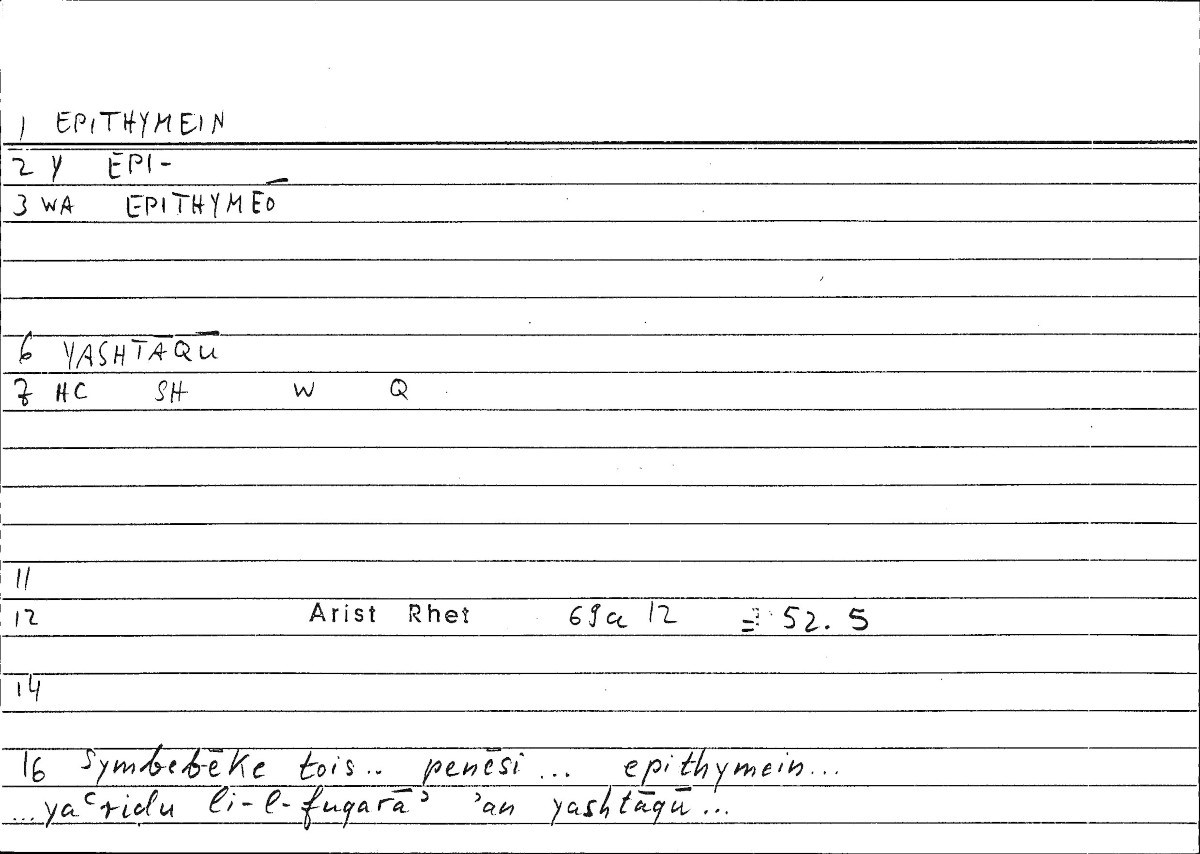 1 EPITHYMEIN
2 Y EPI-
3 WA EPITHYMEŌ
6 YASHTĀQŪ
7 HC SH W Q
11
12 Arist Rhet 69a 12 = 52.5
14
16 Symbebēke tois.. penēsi... epithymein...
...yaʿridu li-l-fuqarāʾ ʾan yashtāqū...